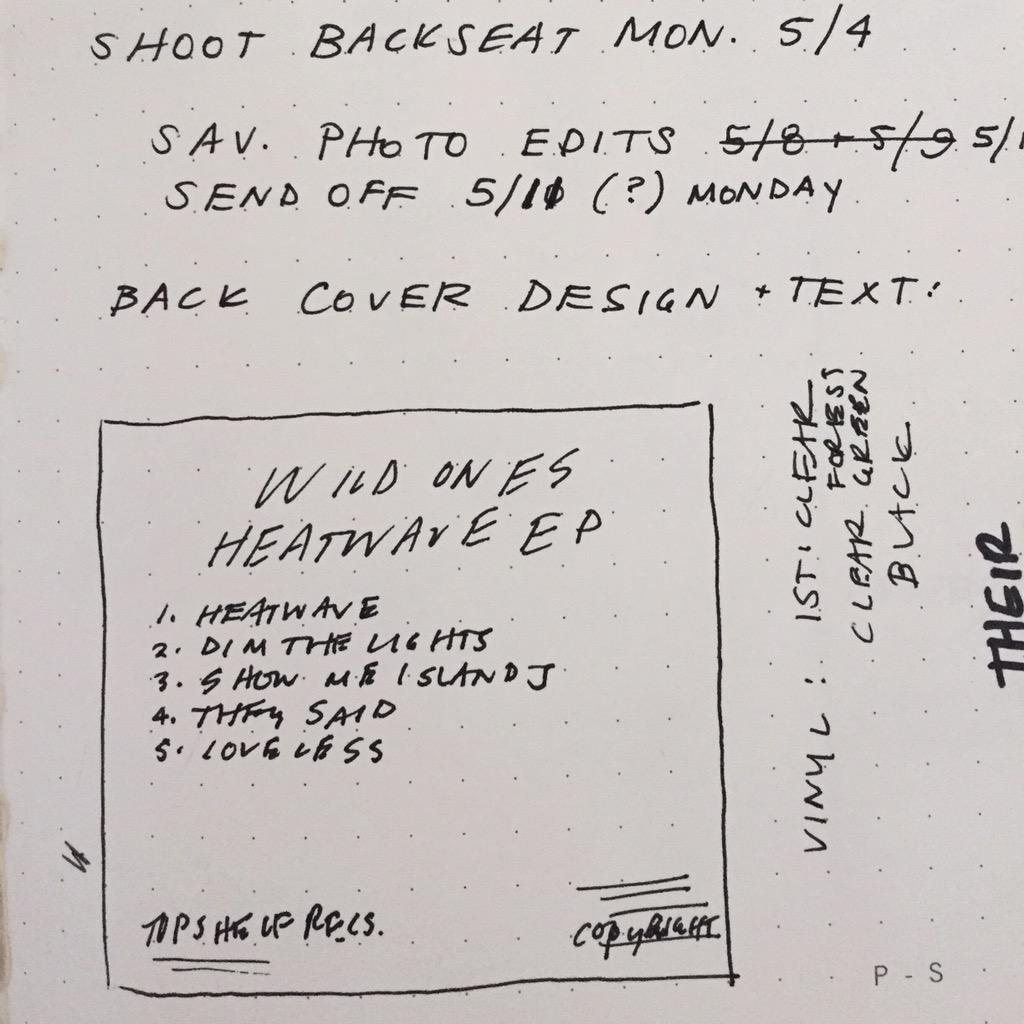 SHOOT BACKSEAT MON. 5/4
SAV. PHOTO EDITS 5/8 + 5/9 5/1
SEND OFF 5/10 (?) MONDAY
BACK COVER DESIGN + TEXT:
WILD ONES
HEATWAVE EP
1. HEATWAVE
2. DIM THE LIGHTS
3. SHOW ME ISLANDS
4. THEY SAID
5. LOVELESS
TOPSHELF RECS.
COPYRIGHT
VINYL: 1ST: CLEAR
FOREST
CLEAR GREEN
BLACK
THEIR
P - S